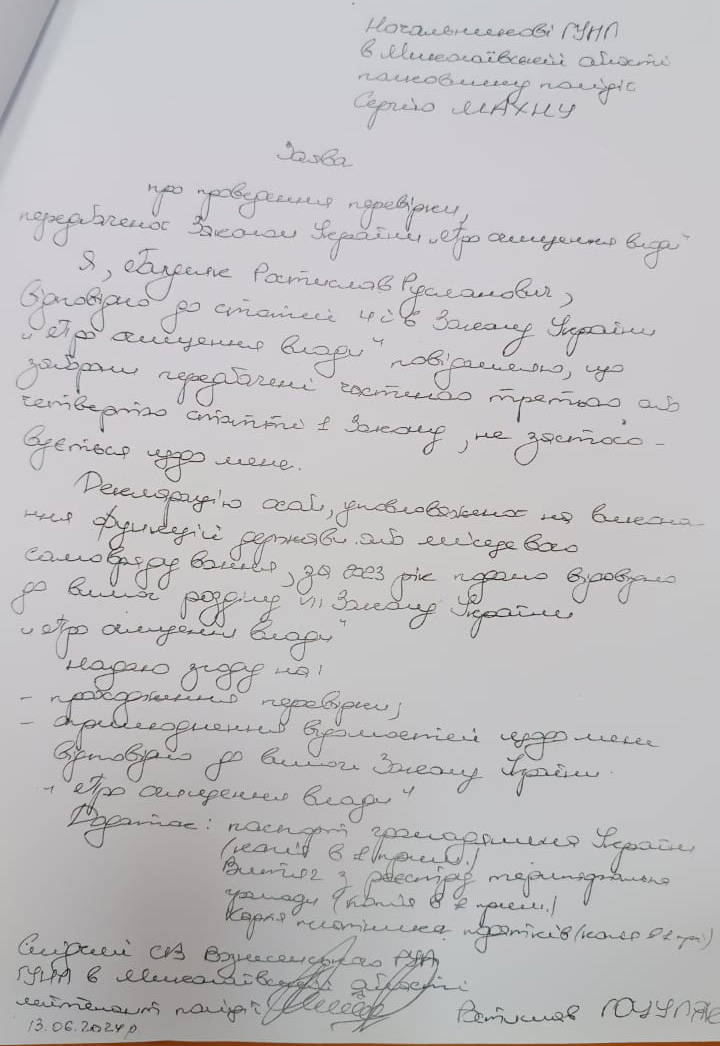 Начальникові ГУНП
в Миколаївській області
полковнику поліції
Сергію МАХНУ
Заява
про проведення перевірки,
передбаченої Законом України „Про очищення влади"
Я, Ростислав Русланович,
відповідно до статті 4 Закону України
„Про очищення влади" повідомляю, що
заборони передбачені частиною третьою або
четвертою статті 1 Закону, не застосо-
вується щодо мене.
Декларацію особи, уповноваженої на викона-
ння функцій держави або місцевого
самоврядування, за 2023 рік подано відповідно
до вимог розділу VII Закону України
„Про очищення влади"
Надаю згоду на:
- проходження перевірки;
- оприлюднення відомостей щодо мене
відповідно до вимог Закону України
„Про очищення влади"
Додаток: паспорт громадянина України
(копія в 1 прим.)
Витяг з реєстру територіальної
громади (копія в 1 прим.)
Картка платника податків (копія в 1 прим)
Слідчий СВ Вознесенського РУП
ГУНП в Миколаївській області
лейтенант поліції Ростислав
13.06.2024р